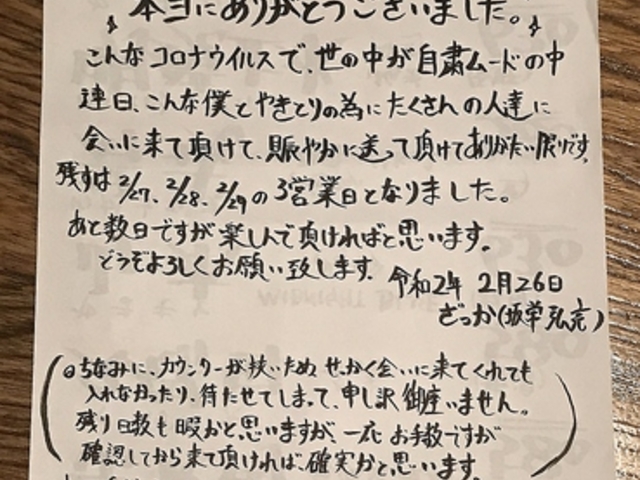 本当にありがとうございました。
こんなコロナウイルスで、世の中が自粛ムードの中
連日、こんな僕とやきとりの為にたくさんの人達に
会いに来て頂けて、賑やかに送って頂けてありがたい限りです。
残すは2/27、2/28、2/29の3営業日となりました。
あと数日ですが楽しんで頂ければと思います。
どうぞよろしくお願い致します。
令和2年 2月26日
ざっか(坂井弘亮)
(◦ちなみに、カウンターが狭いため、せっかく会いに来てくれても
入れなかったり、待たせてしまって、申し訳御座いません。
残り日数も暇かと思いますが、一応お手数ですが
確認してから来て頂ければ、確実かと思います。)